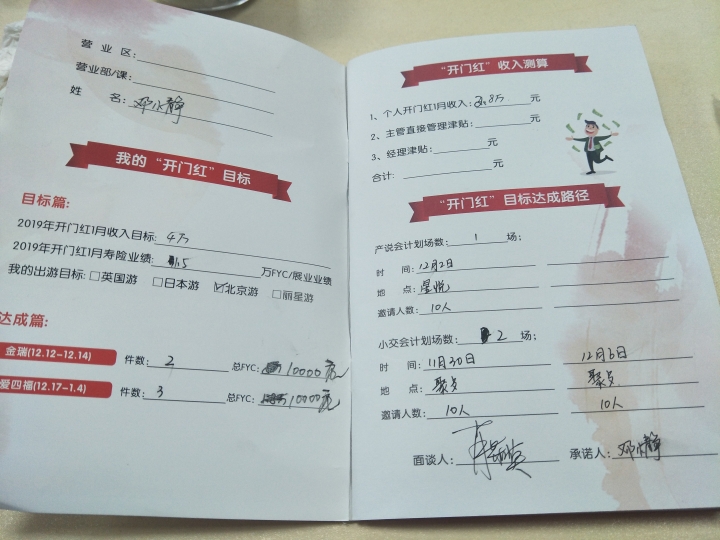 营 业 区:
营业部/课:
姓 名: 邓小静
我的“开门红”目标
目标篇:
2019年开门红1月收入目标: 4万
2019年开门红1月寿险业绩: 1.5 万FYC/展业业绩
我的出游目标: □英国游 □日本游 ☑北京游 □丽星游
达成篇:
金瑞(12.12-12.14) 件数: 2 总FYC: 10000元
爱四福(12.17-1.4) 件数: 3 总FYC: 10000元
“开门红”收入测算
1、个人开门红1月收入: 2.85万 元
2、主管直接管理津贴: 元
3、经理津贴: 元
合计: 元
“开门红”目标达成路径
产说会计划场数: 1 场;
时 间: 12月2日
地 点: 星悦
邀请人数: 10人
小交会计划场数: 2 场;
时 间: 11月30日 12月6日
地 点: 聚点 聚点
邀请人数: 10人 10人
面谈人: 承诺人: 邓小静